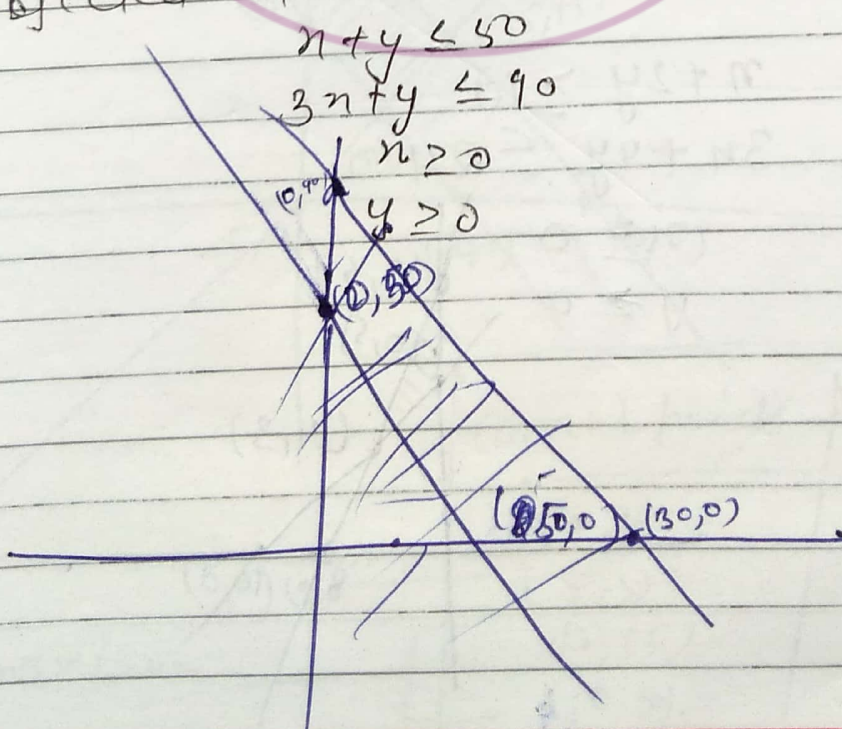 x + y ≤ 50
3x + y ≤ 90
x ≥ 0
(0,90)
y ≥ 0
(0,50)
(50,0) (30,0)